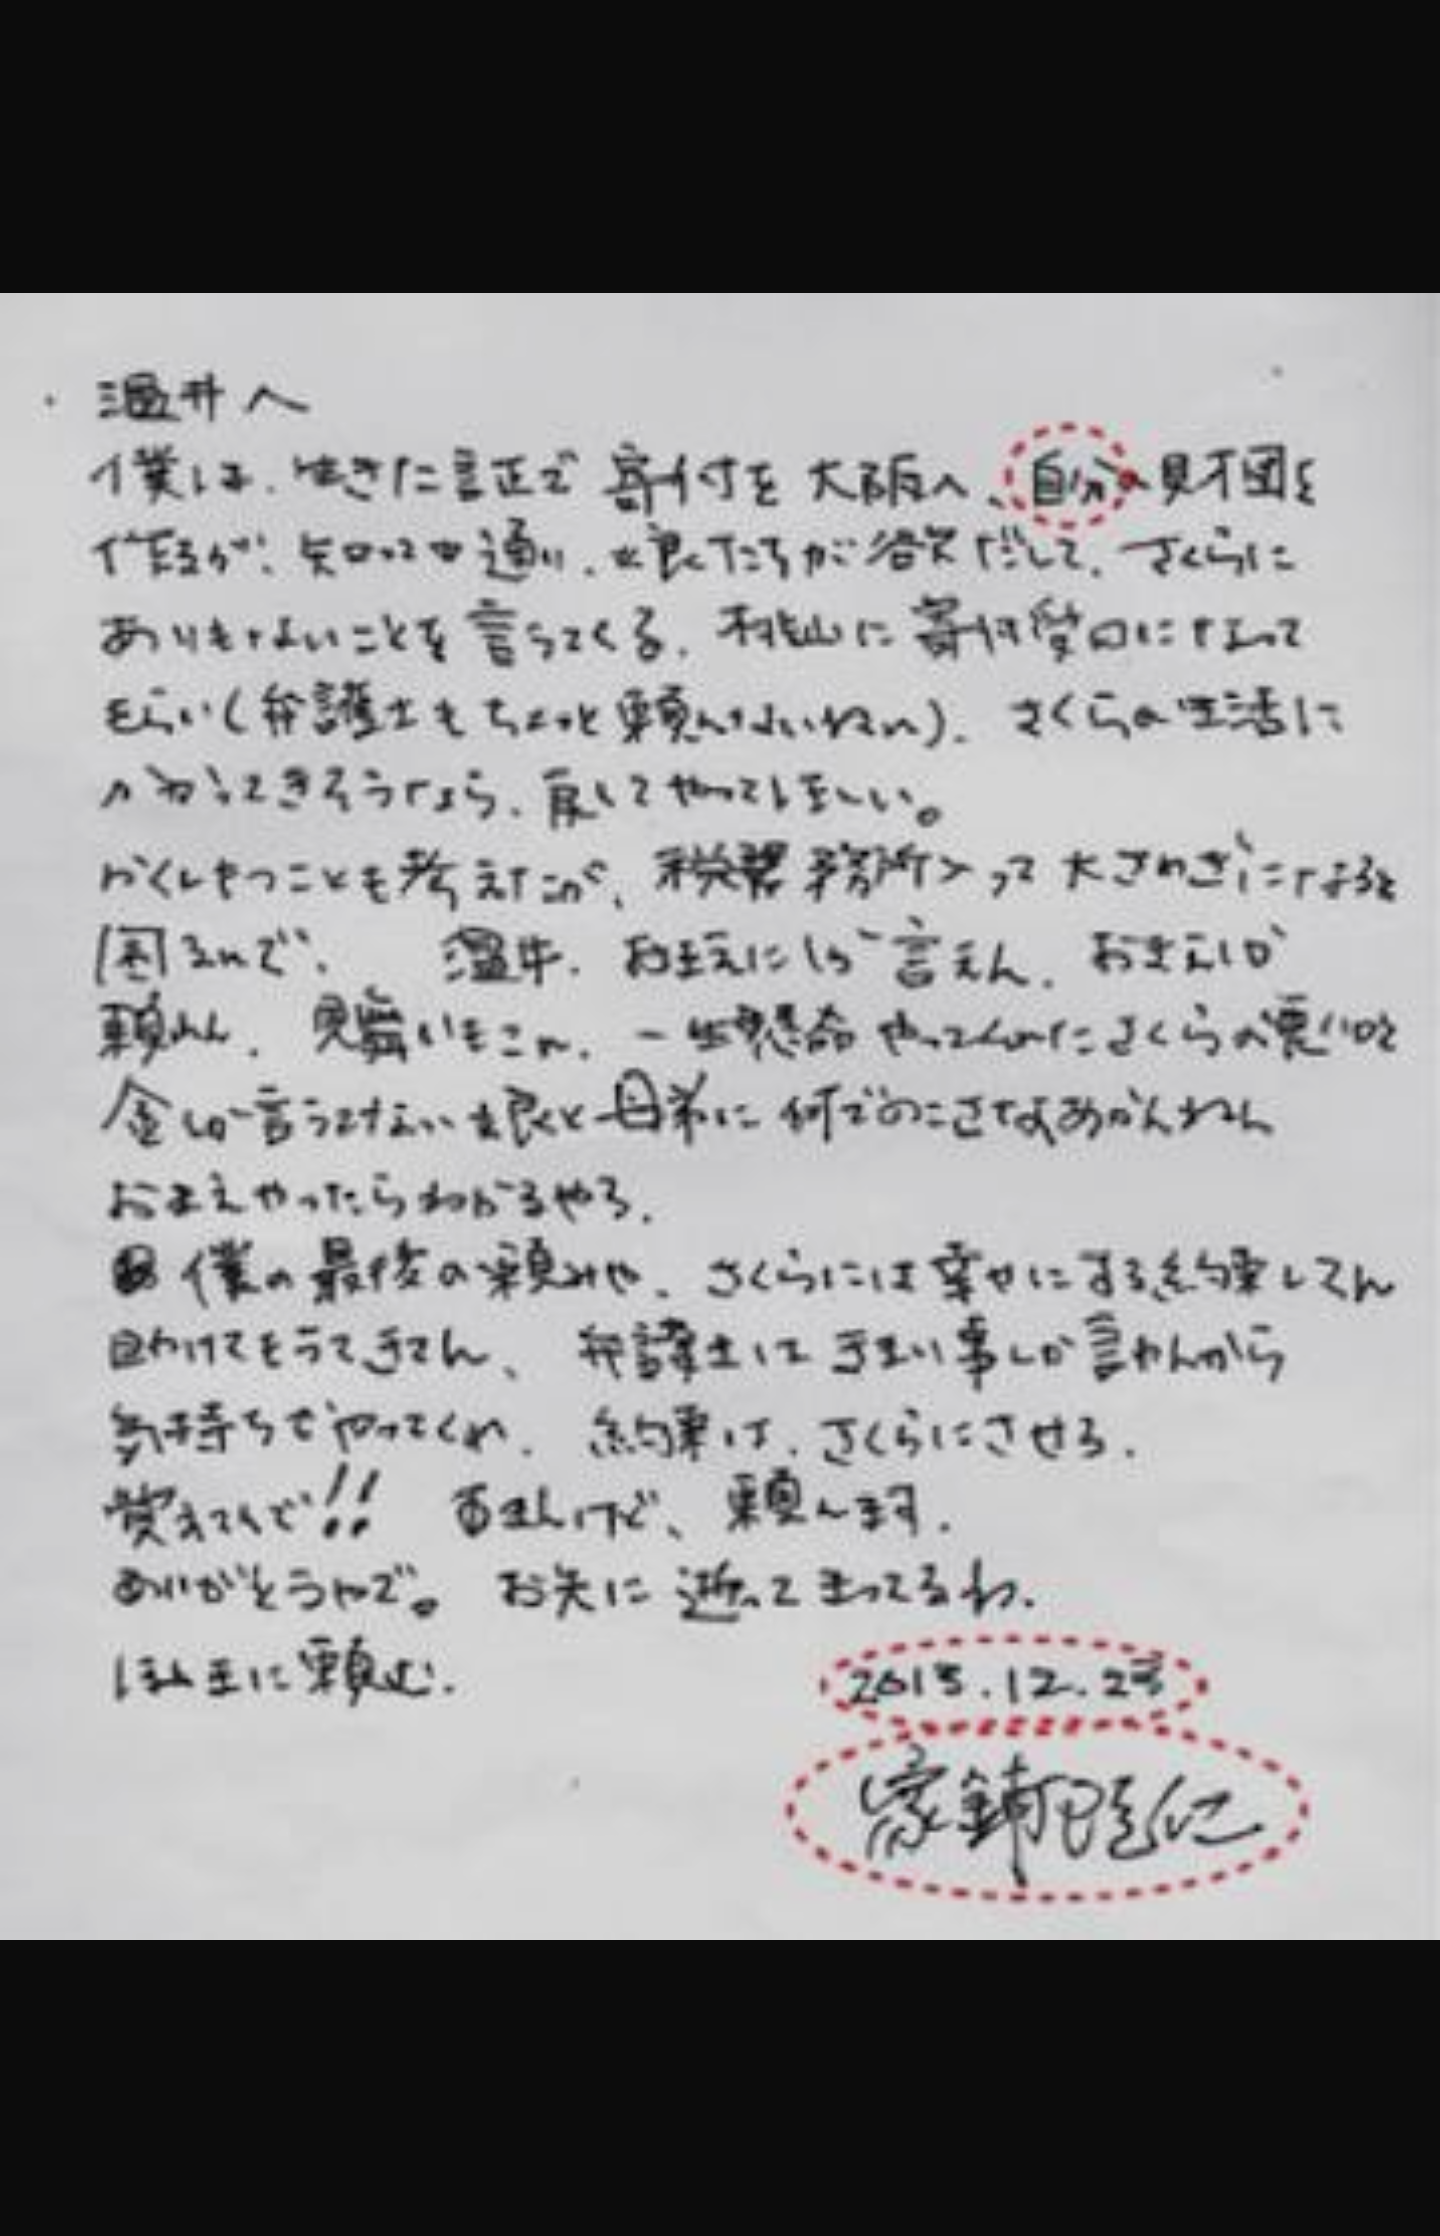 温井へ
僕は、生きた証で寄付を大阪へ、自分の財団を
作るが、知っての通り、娘たちが欲だして、さくらに
ありもしないことを言うてくる。桃山に寄付窓口になって
もらい(弁護士もちょっと頼んないねん)、さくらの生活に
かかってきそうなら、戻してやってほしい。
かくしやつことも考えたが、税務務所入って大さわぎになると
困るんで、 温井、おまえにしか言えん、おまえしか
頼れん、見舞いもこん、一生懸命やってんのにさくらの悪口と
金しか言うてけない娘と母弟に何でのこさなあかんねん
おまえやったらわかるやろ、
僕の最後の頼みや、さくらには幸せにする約束してん
助けてもうてきてん、 弁護士は手まい事しか言わんから
気持ちでやってくれ、 約束は、さくらにさせろ、
覚えてんで!! すまんけど、頼んます、
ありがとうやで。 お先に逝って まってるわ、
ほんまに頼む、
2015.12.23
家鋪隆仁